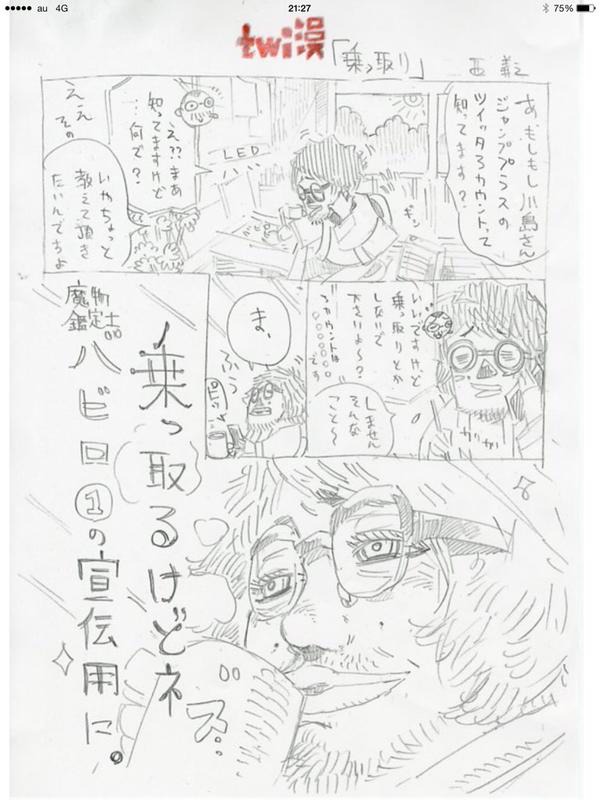 ●●●●● au 4G
21:27
75%
twi漫「乗っ取り」
西 義之
あ、もしもし川島さん
ジャンププラスの
ツイッタろカウントって
知ってます?
え??まあ
知ってますけど
…何で?
LED
ギシ
ええ
その
いやちょっと
教えて頂き
たいんですょ
いいですけど
乗っ取りとか
しないで
下さいよ〜?
カウントは
○○○○○○○です
しません
そんな
こと〜
ま、
ふぅ
ピッ
乗っ取るけどネ
魔物
鑑定士
バビロ①の宣伝用に。
ズ…